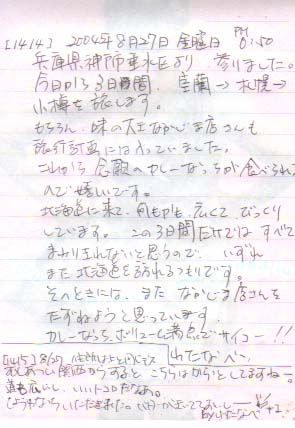 [1414] 2004年8月27日 金曜日 PM 6:50
兵庫県神戸市垂水区より 参りました。
今日から3日間、室蘭→札幌→
小樽を旅します。
もちろん、味の大王なかじま店さんも
旅行計画には入っていました。
これから念願のカレーなっちが食べられる
ので嬉しいです。
北海道に来て、何もかも広くて、びっくり
しています。この3日間だけではすべて
まわりきれないと思うので、いずれ
また北海道を訪れるつもりです。
そのときには、また なかじま店さんを
たずねようと思っています。
カレーなっち、ボリューム満点でサイコー!!
わたなべ、
[1415] 8/27
あつい関西からすると こちらはからっとしてますねー。
道も広いし、いいトコロだなあ。
by わたなべ